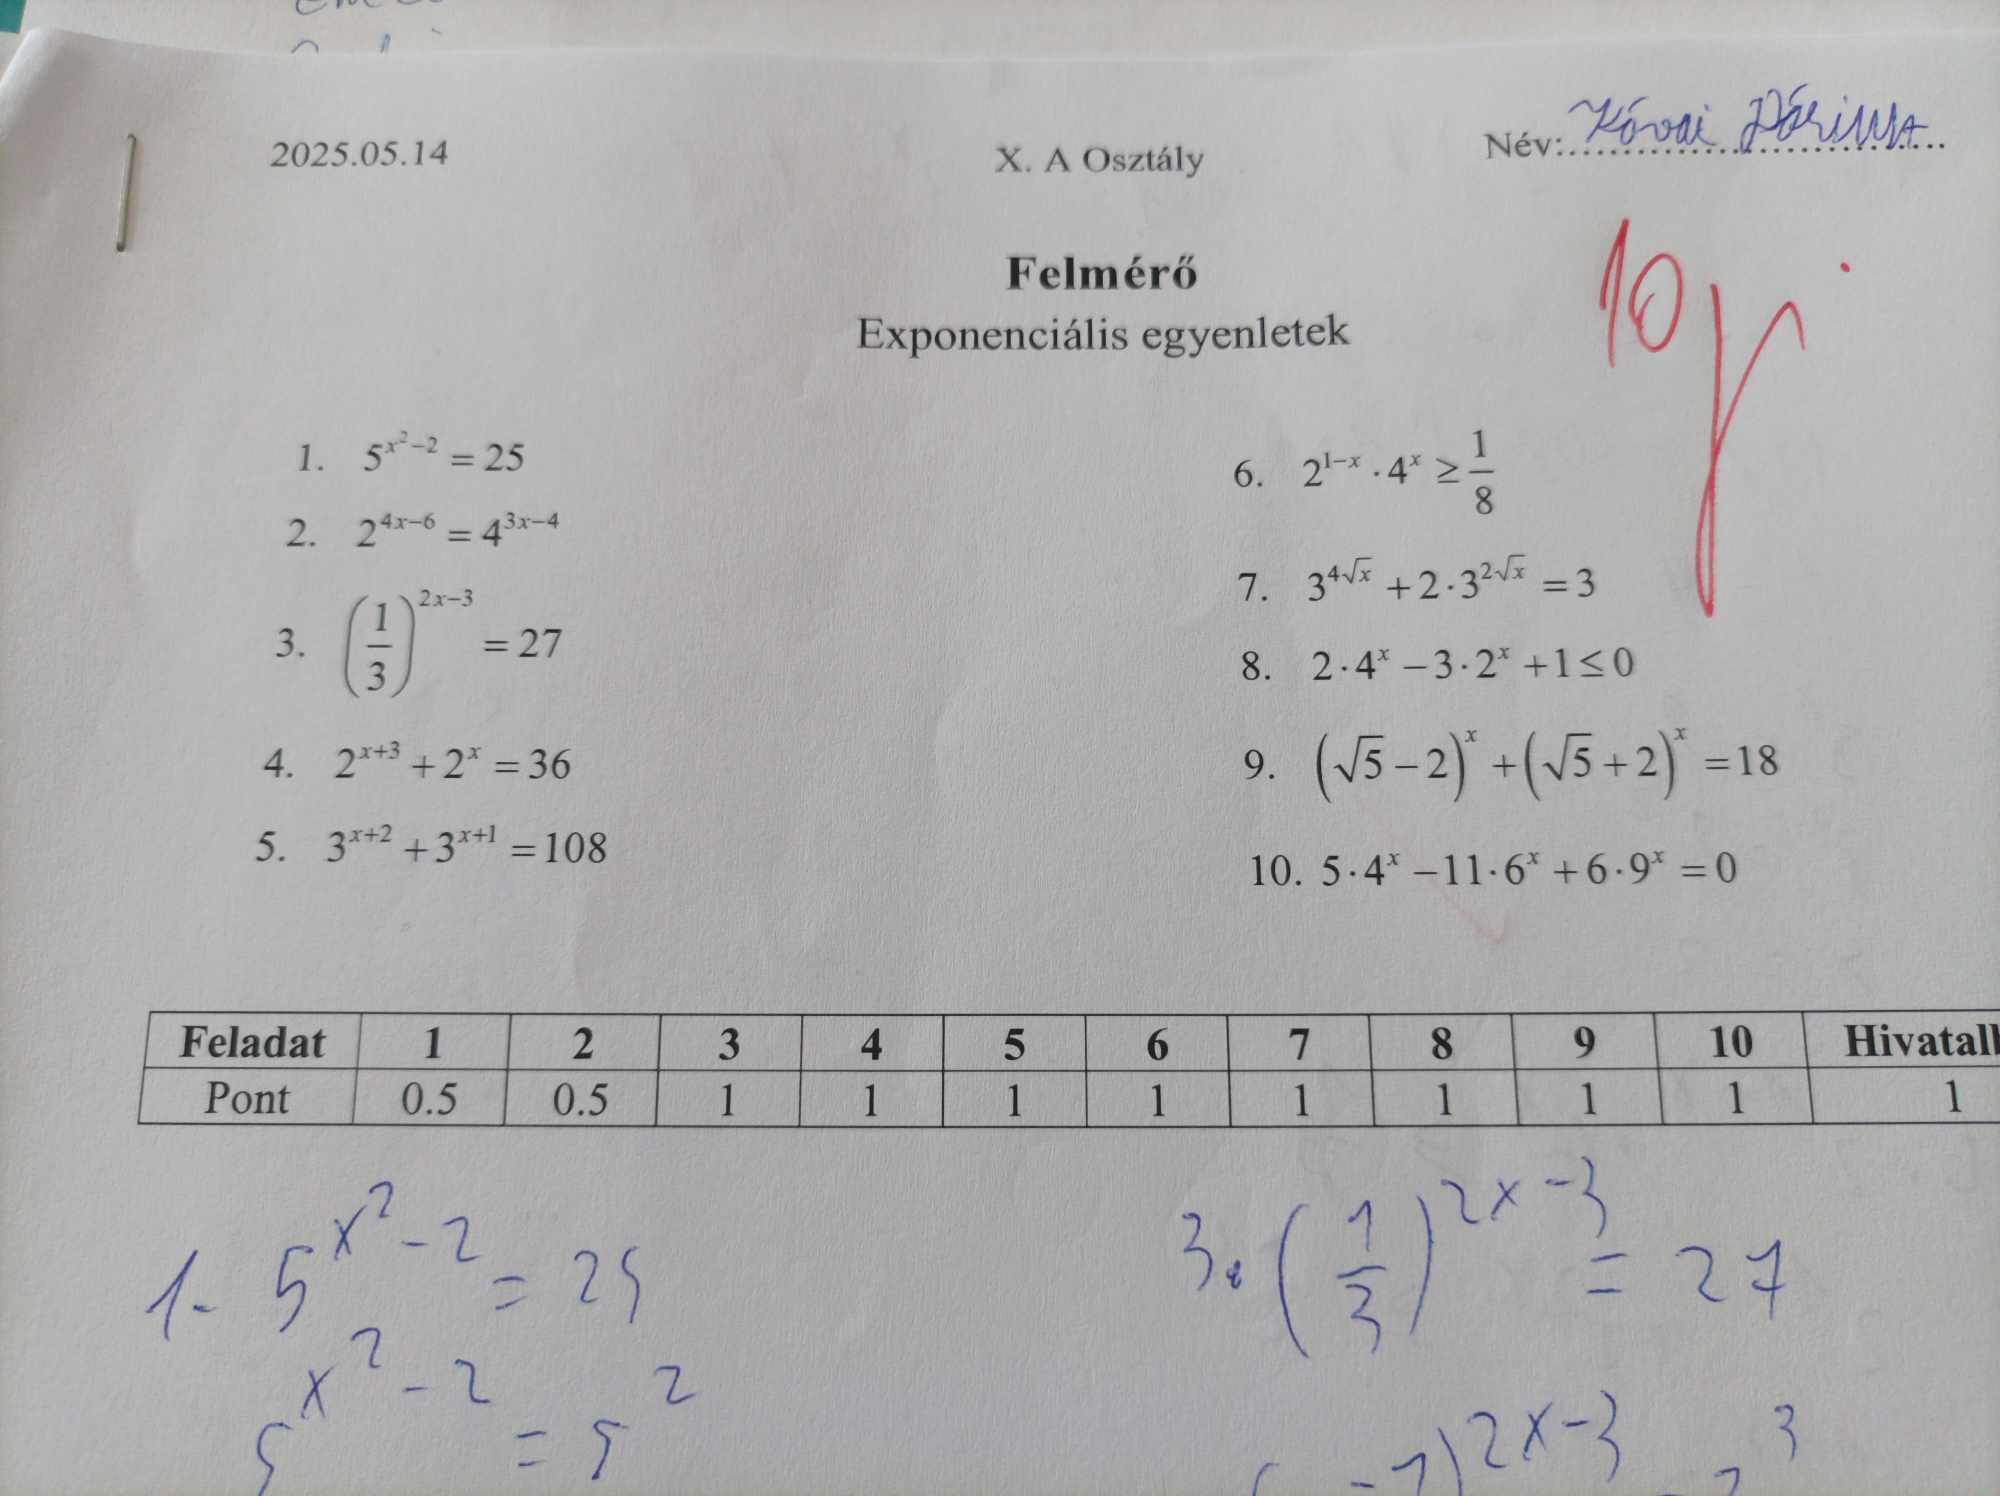 2025.05.14 X. A Osztály Név: Kóvai Dárius
10
Felmérő
Exponenciális egyenletek
1. 5^{x²-2} = 25
2. 2^{4x-6} = 4^{3x-4}
3. (1/3)^{2x-3} = 27
4. 2^{x+3} + 2^x = 36
5. 3^{x+2} + 3^{x+1} = 108
6. 2^{1-x} · 4^x ≥ 1/8
7. 3^{4√x} + 2 · 3^{2√x} = 3
8. 2 · 4^x - 3 · 2^x + 1 ≤ 0
9. (√5 - 2)^x + (√5 + 2)^x = 18
10. 5 · 4^x - 11 · 6^x + 6 · 9^x = 0
Feladat 1 2 3 4 5 6 7 8 9 10
Pont 0.5 0.5 1 1 1 1 1 1 1 1 1
1. 5^{x²-2} = 25
5^{x²-2} = 5²
3. (1/3)^{2x-3} = 27